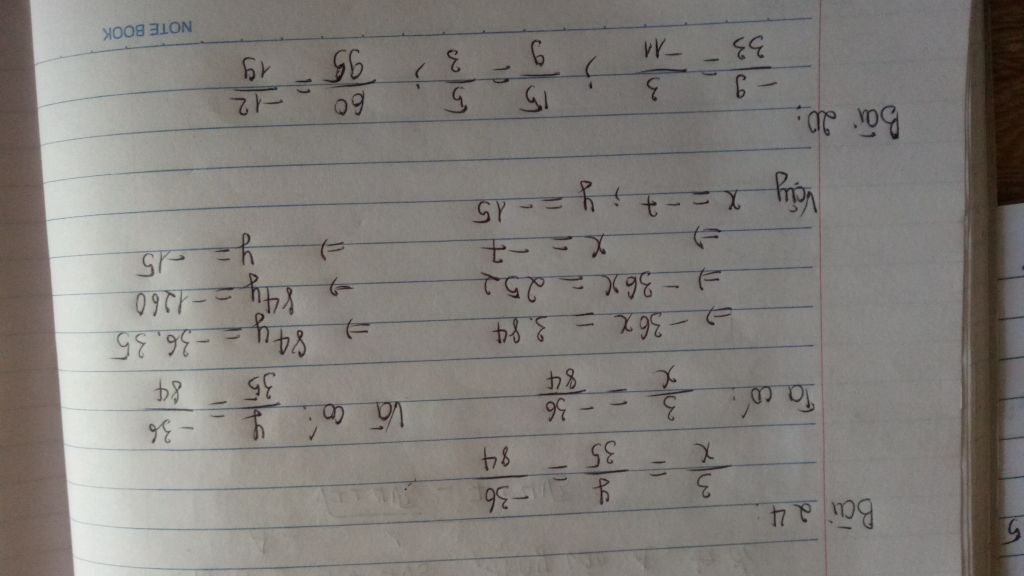 Bài 24:
3/x = y/35 = -36/84
Ta có: 3/x = -36/84 Và có: y/35 = -36/84
⇒ -36x = 3.84 ⇒ 84y = -36.35
⇒ -36x = 252 ⇒ 84y = -1260
⇒ x = -7 ⇒ y = -15
Vậy x = -7 ; y = -15
Bài 20:
-9/33 = 3/-11 ; 15/9 = 5/3 ; 60/95 = -12/19
NOTE BOOK
5